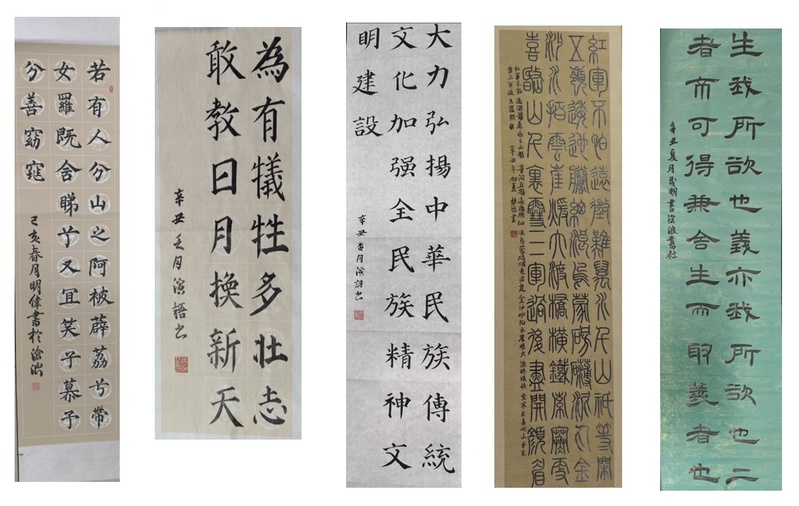 若有人兮山之阿被薜荔兮帶
女羅既含睇兮又宜笑子慕予
兮善窈窕
己亥春月明偉書於滄浪
為有犧牲多壯志
敢教日月換新天
辛丑夏月
大力弘揚中華民族傳統
文化加强全民族精神文
明建設
辛丑夏月
紅軍不怕遠征難萬水千山祇等閒
五嶺逶迤騰細浪烏蒙磅礴走泥丸金
沙水拍雲崖暖大渡橋橫鐵索寒更
喜岷山千里雪三軍過後盡開顏
生我所欲也義亦我所欲也二
者不可得兼舍生而取義者也
辛丑夏月茂明書滄浪書社